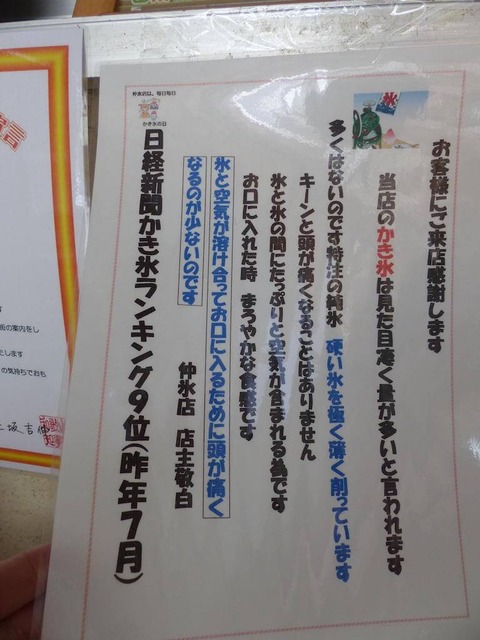 お客様にご来店感謝します
当店のかき氷は見た目凄く量が多いと言われます
多くはないのです特注の純氷 硬い氷を極く薄く削っています
キーンと頭が痛くなることはありません
氷と氷の間にたっぷりと空気が含まれる為です
お口に入れた時 まろやかな食感です
氷と空気が溶け合ってお口に入るために頭が痛く
なるのが少ないのです
仲氷店 店主敬白
日経新聞かき氷ランキング9位(昨年7月)
仲氷店は、毎日毎日
かき氷の日
氷
言
板の案内をし
します
の気持ちでおも